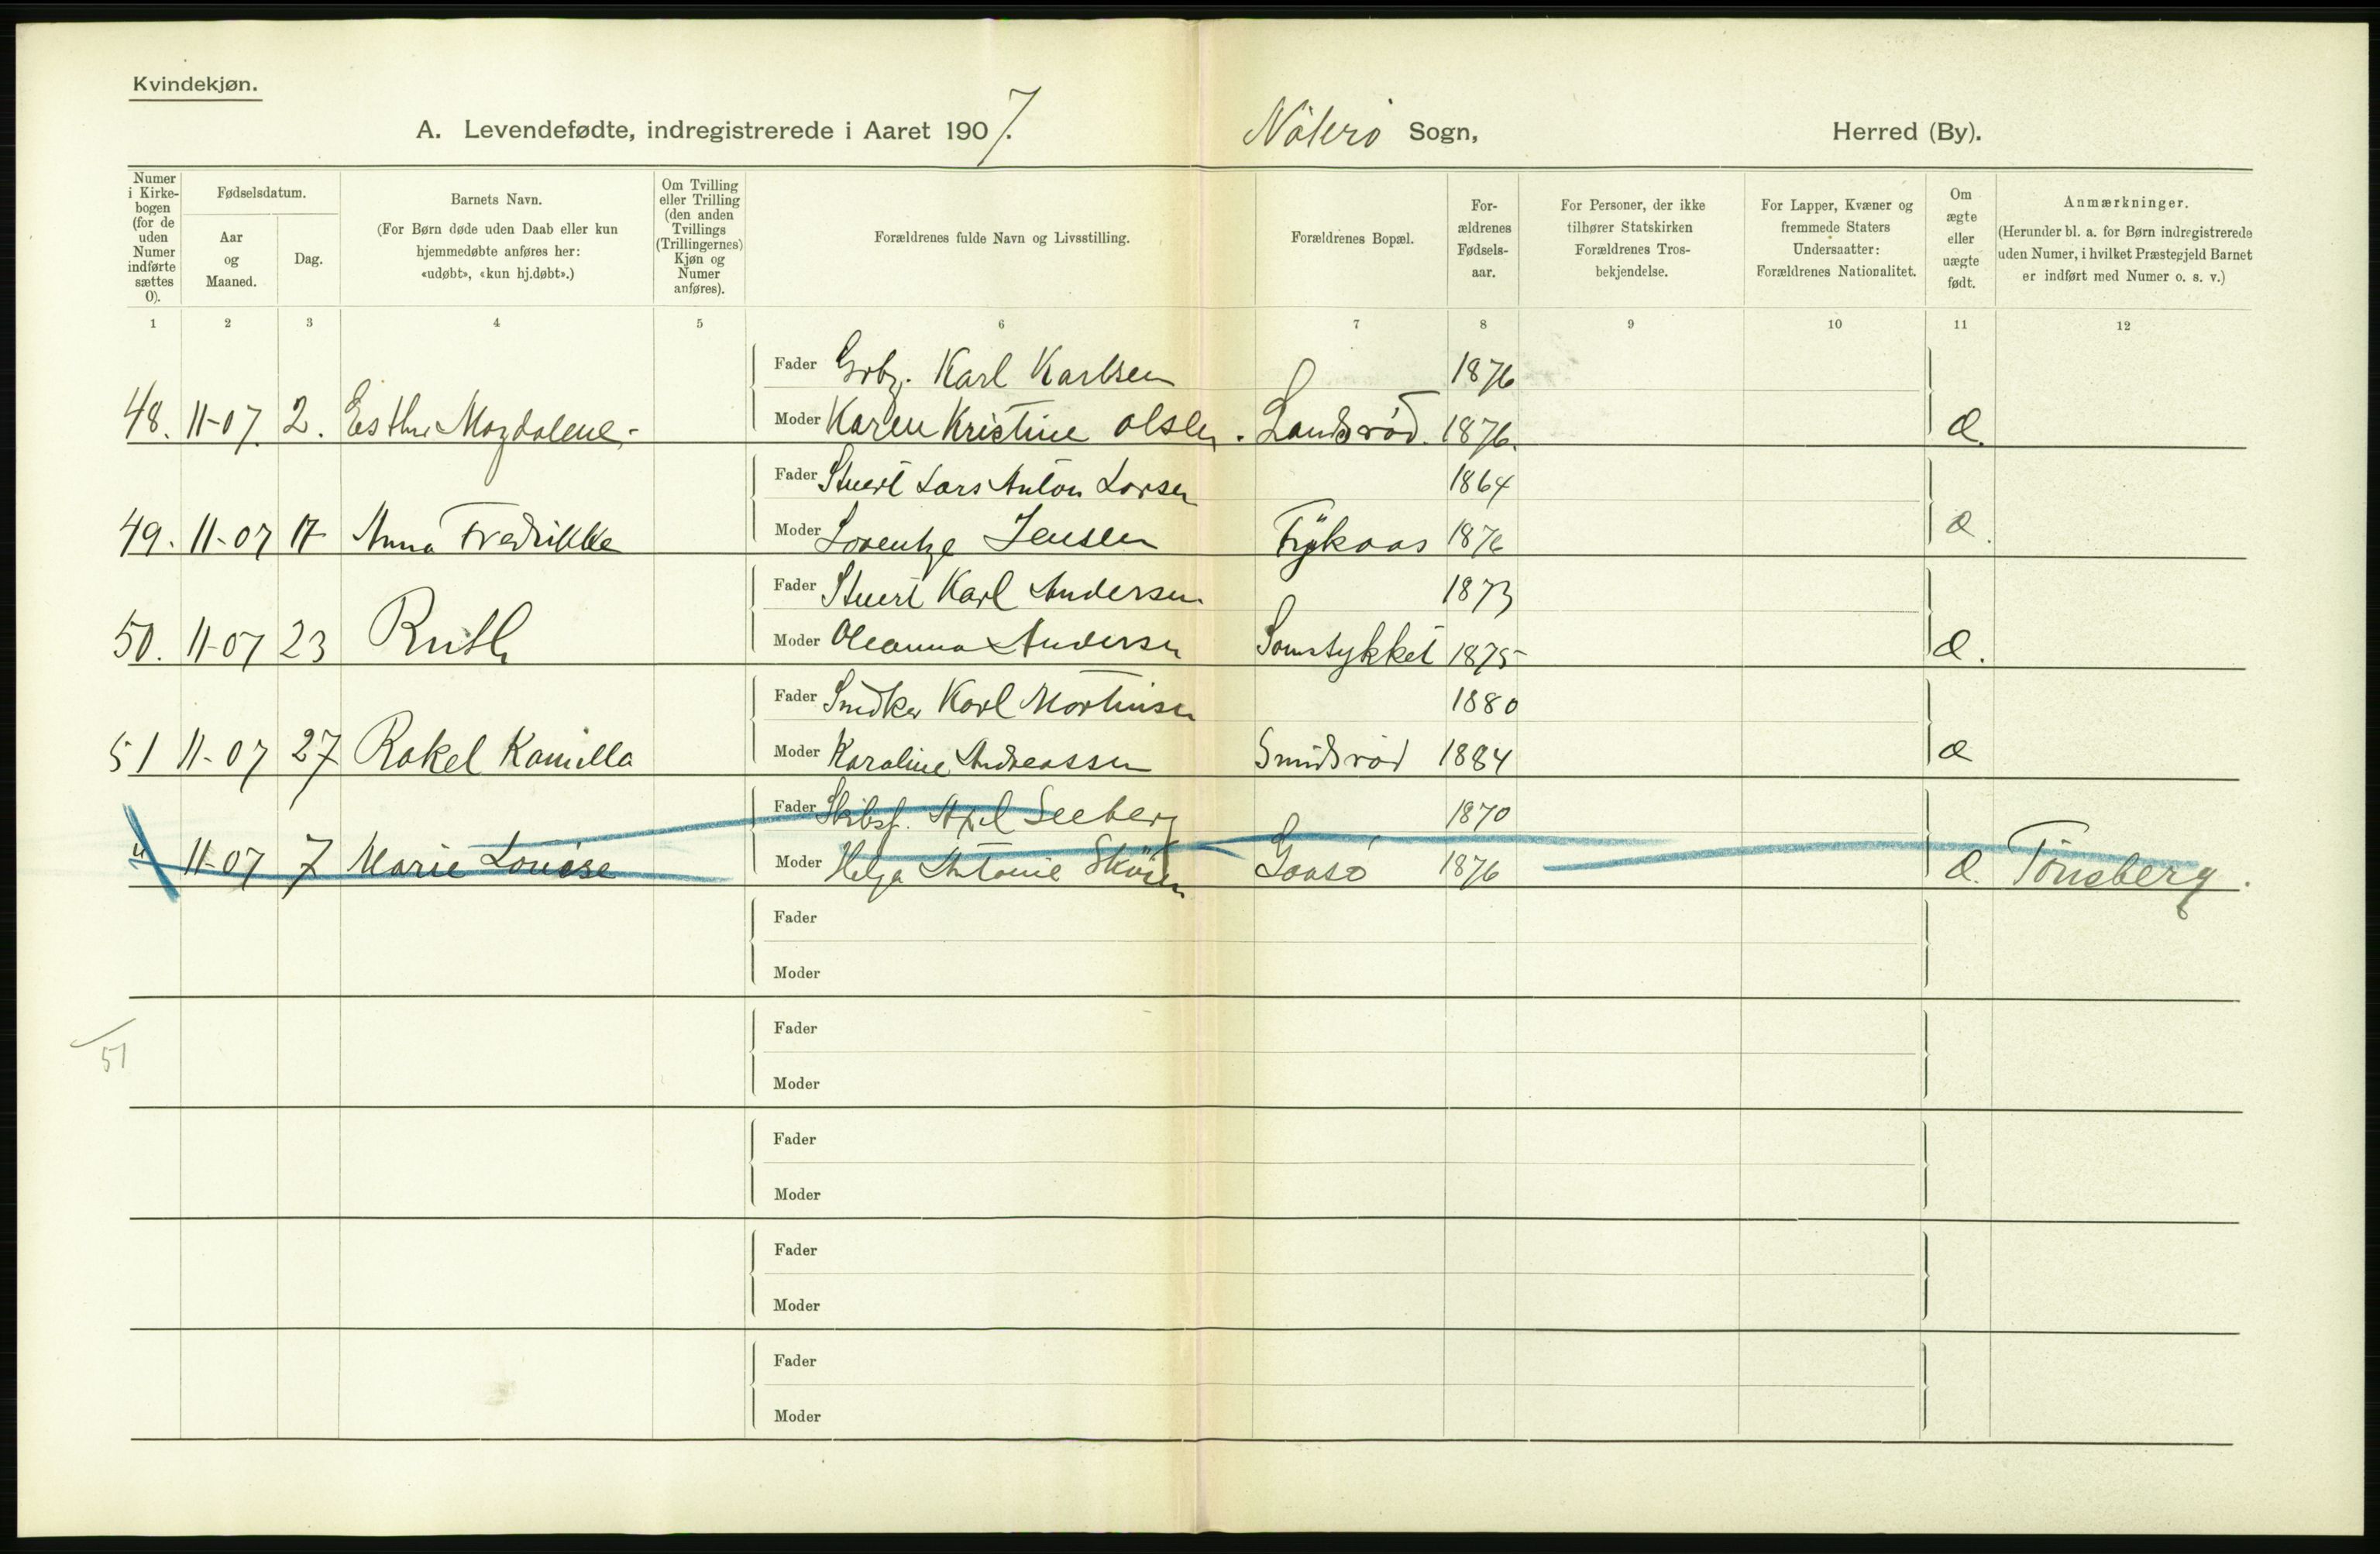 Kvindekjøn.
A. Levendefødte, indregistrerede i Aaret 1907. Nöterö Sogn, Herred (By).
Numer i Kirkebogen (for de uden Numer indførte sættes 0).
Fødselsdatum.
Aar og Maaned.
Dag.
Barnets Navn.
(For Børn døde uden Daab eller kun hjemmedøbte anføres her: «udøbt», «kun hj.døbt».)
Om Tvilling eller Trilling (den anden Tvillings (Trillingernes) Kjøn og Numer anføres).
Forældrenes fulde Navn og Livsstilling.
Forældrenes Bopæl.
For-ældrenes Fødsels-aar.
For Personer, der ikke tilhører Statskirken Forældrenes Tros-bekjendelse.
For Lapper, Kvæner og fremmede Staters Undersaatter: Forældrenes Nationalitet.
Om ægte eller uægte født.
Anmærkninger.
(Herunder bl. a. for Børn indregistrerede uden Numer, i hvilket Præstegjeld Barnet er indført med Numer o. s. v.)
1 2 3 4 5 6 7 8 9 10 11 12
Fader Grbr. Karl Karlsen 1876
48. 11-07. 2. Esther Magdalene. Moder Karen Kristine Olsen. 1876. Æ.
Fader Stuert Lars Anton Larsen 1864
49. 11-07 17 Anna Fredrikke Moder Lorentze Jensen 1876 Æ.
Fader Stuert Karl Andersen 1873
50. 11-07 23 Ruth Moder Oleanna Andersen 1875 Æ.
Fader Snedker Karl Martinsen 1880
51 11-07 27 Rakel Kamilla Moder Karoline Andreassen Smidsröd 1884 Æ
Fader Skibsf. Axel Seeberg 1870
" 11-07 7 Marie Louise Moder Helga Antonie Gaasö 1876 Æ. Tönsberg.
Fader
Moder
51
Fader
Moder
Fader
Moder
Fader
Moder
Fader
Moder